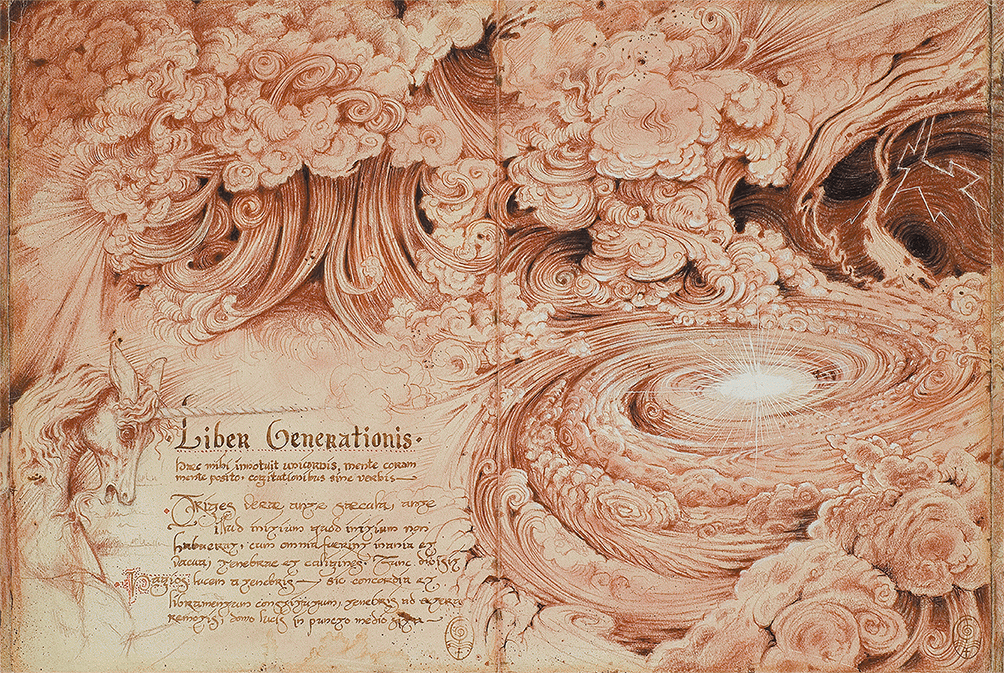 ·Liber Generationis·
haec mihi innotuit unicornis, mente coram
mente posito, cogitationibus sine verbis —
ante saecula, ante
illud initium quod initium non
habuerat, cum omnia fuerint inania et
vacua, tenebrae et caligines. Tunc divisit
lucem a tenebris — sic concordia et
libramentum constitutum, tenebris ad extera
remotis, domo lucis in puncto medio fixa —